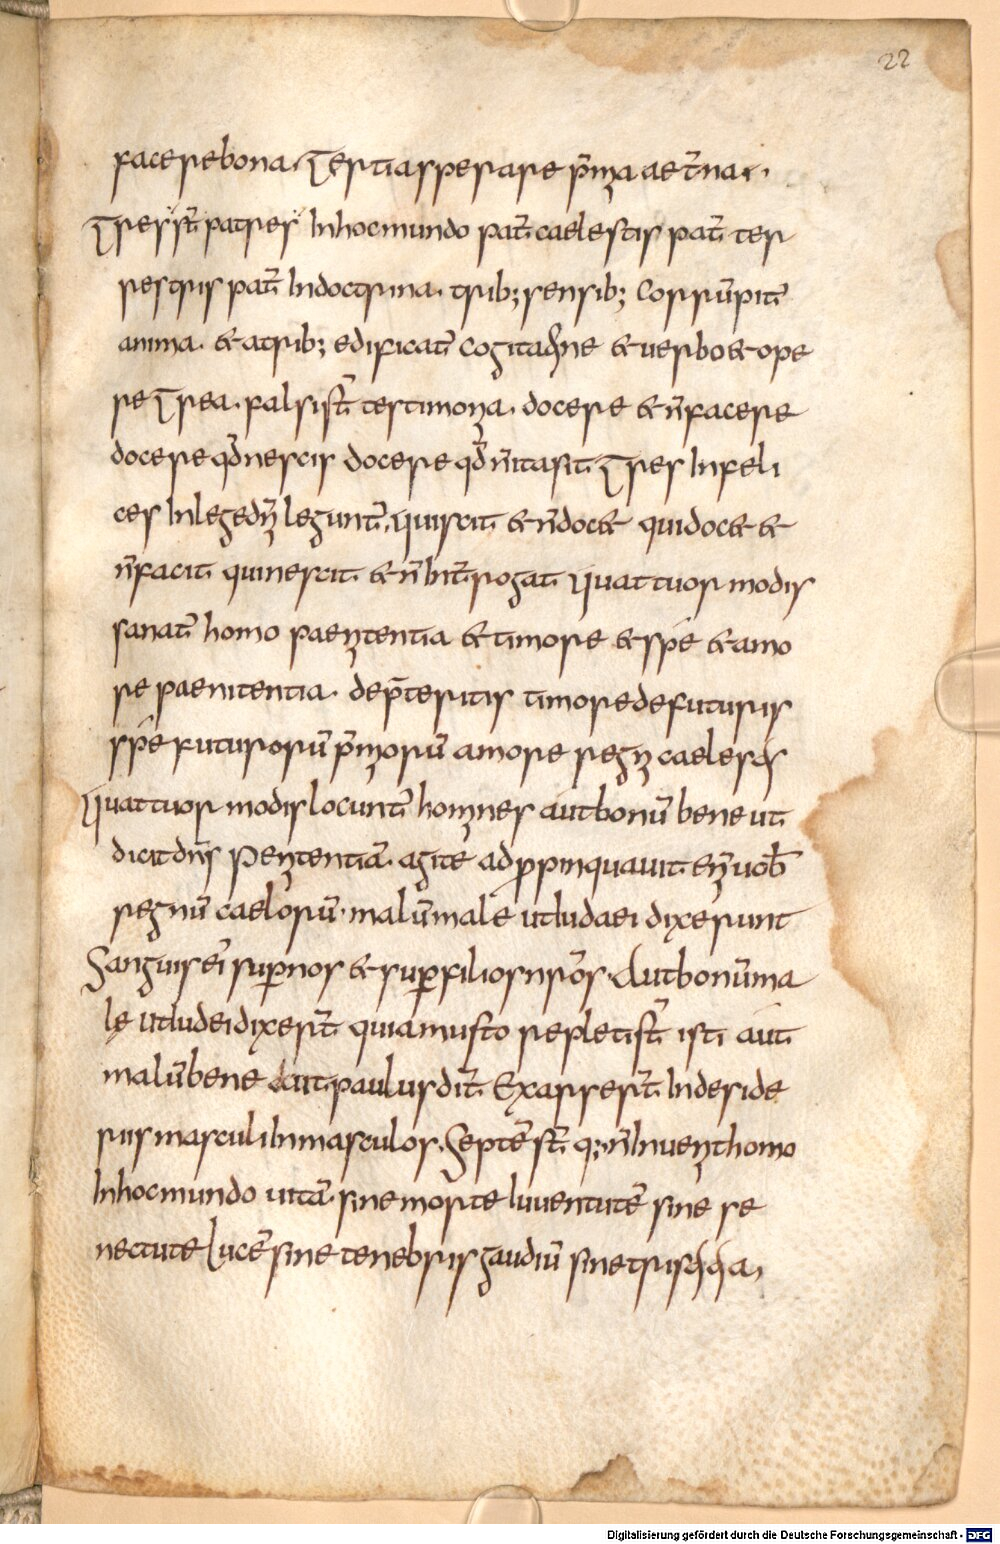 22
facere bona. Tertia sperare p̄mia aet̄na.
Tres st̄ patres In hoc mundo pat̄ caelestis pat̄ ter
restris pat̄ In doctrina. trib; sensib; Corrūpit̄
anima. & a trib; edificat̄ cogitatione & uerbo & ope
re Trea. falsi st̄ testimonia. docere & n̄ facere
docere qd̄ nescis docere qd̄ n̄ ita sit Tres Infeli
ces In lege dn̄i legunt̄. Qui scit & n̄ doc& qui doc& &
n̄ facit qui nescit & n̄ Int̄rogat Quattuor modis
sanat̄ homo paenitentia & timore & spē & amo
re paenitentia. de p̄teritis timore de futuris
spē futurorū p̄miorū amore regni caelestis
Quattuor modis locunt̄ homines aut bonū bene ut
dicit dn̄s Penitentiā. agite adpropinquauit eni͞ uob̄
regnū caelorū. malū male ut Iudaei dixerunt
Sanguis ei͞ super nos & super filios nr̄os. Aut bonū ma
lę ut Iudei dixer̄t quia musto repleti st̄ isti aut
malū bene aut paulus dit̄ Exarser̄t In deside
riis masculi In masculos. Septē st̄ q; n̄ Inuenit homo
In hoc mundo uitā. sine morte Iuuentutē sine se
nectute Lucē sine tenebris gaudiū sine tristitia,
Digitalisierung gefördert durch die Deutsche Forschungsgemeinschaft - DFG